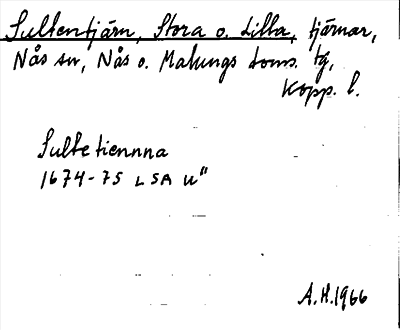 Sultentjärn, Stora o. Lilla, tjärnar,
Nås sn, Nås o. Malungs doms. tg,
Kopp. l.
Sulte tiennna
1674-75 LSA U"
A.H. 1966